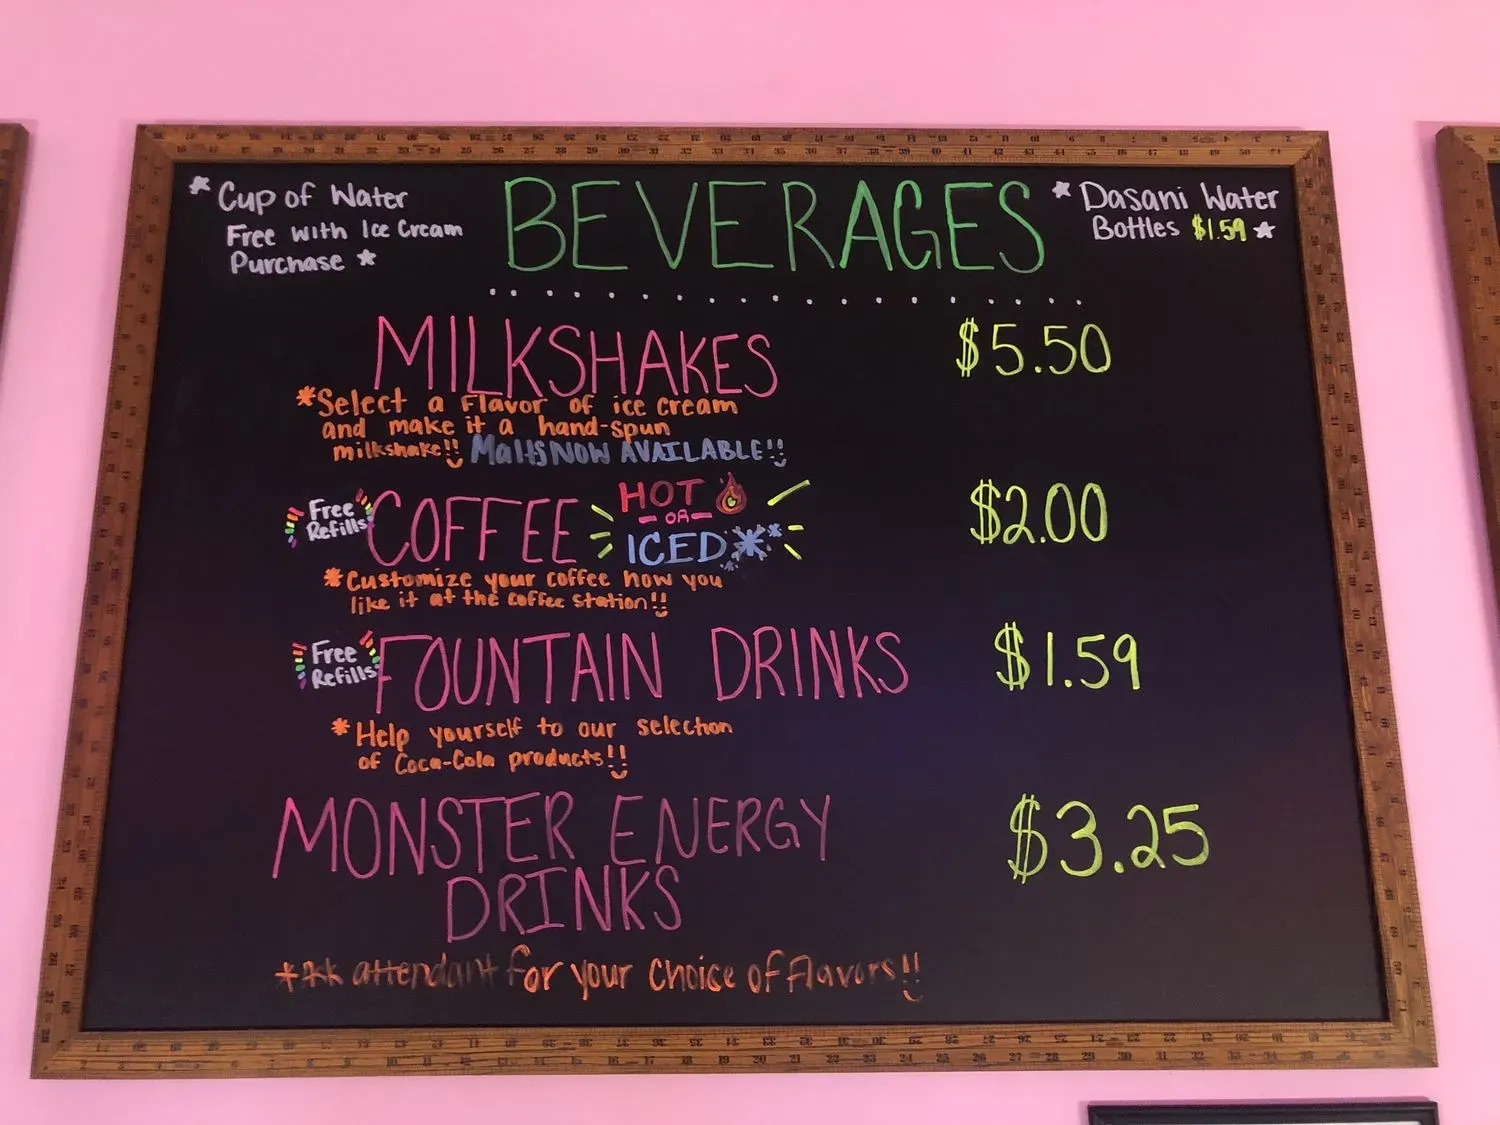 * Cup of Water
Free with Ice Cream
Purchase *
BEVERAGES
* Dasani Water
Bottles $1.59 *
MILKSHAKES $5.50
*Select a Flavor of ice cream
and make it a hand-spun
milkshake!! Malts NOW AVAILABLE!!
Free
Refills
COFFEE HOT
-OR-
ICED
$2.00
*Customize your coffee how you
like it at the coffee station!!
Free
Refills
FOUNTAIN DRINKS $1.59
*Help yourself to our selection
of Coca-Cola products!!
MONSTER ENERGY
DRINKS
$3.25
*Ask attendant for your choice of Flavors!!